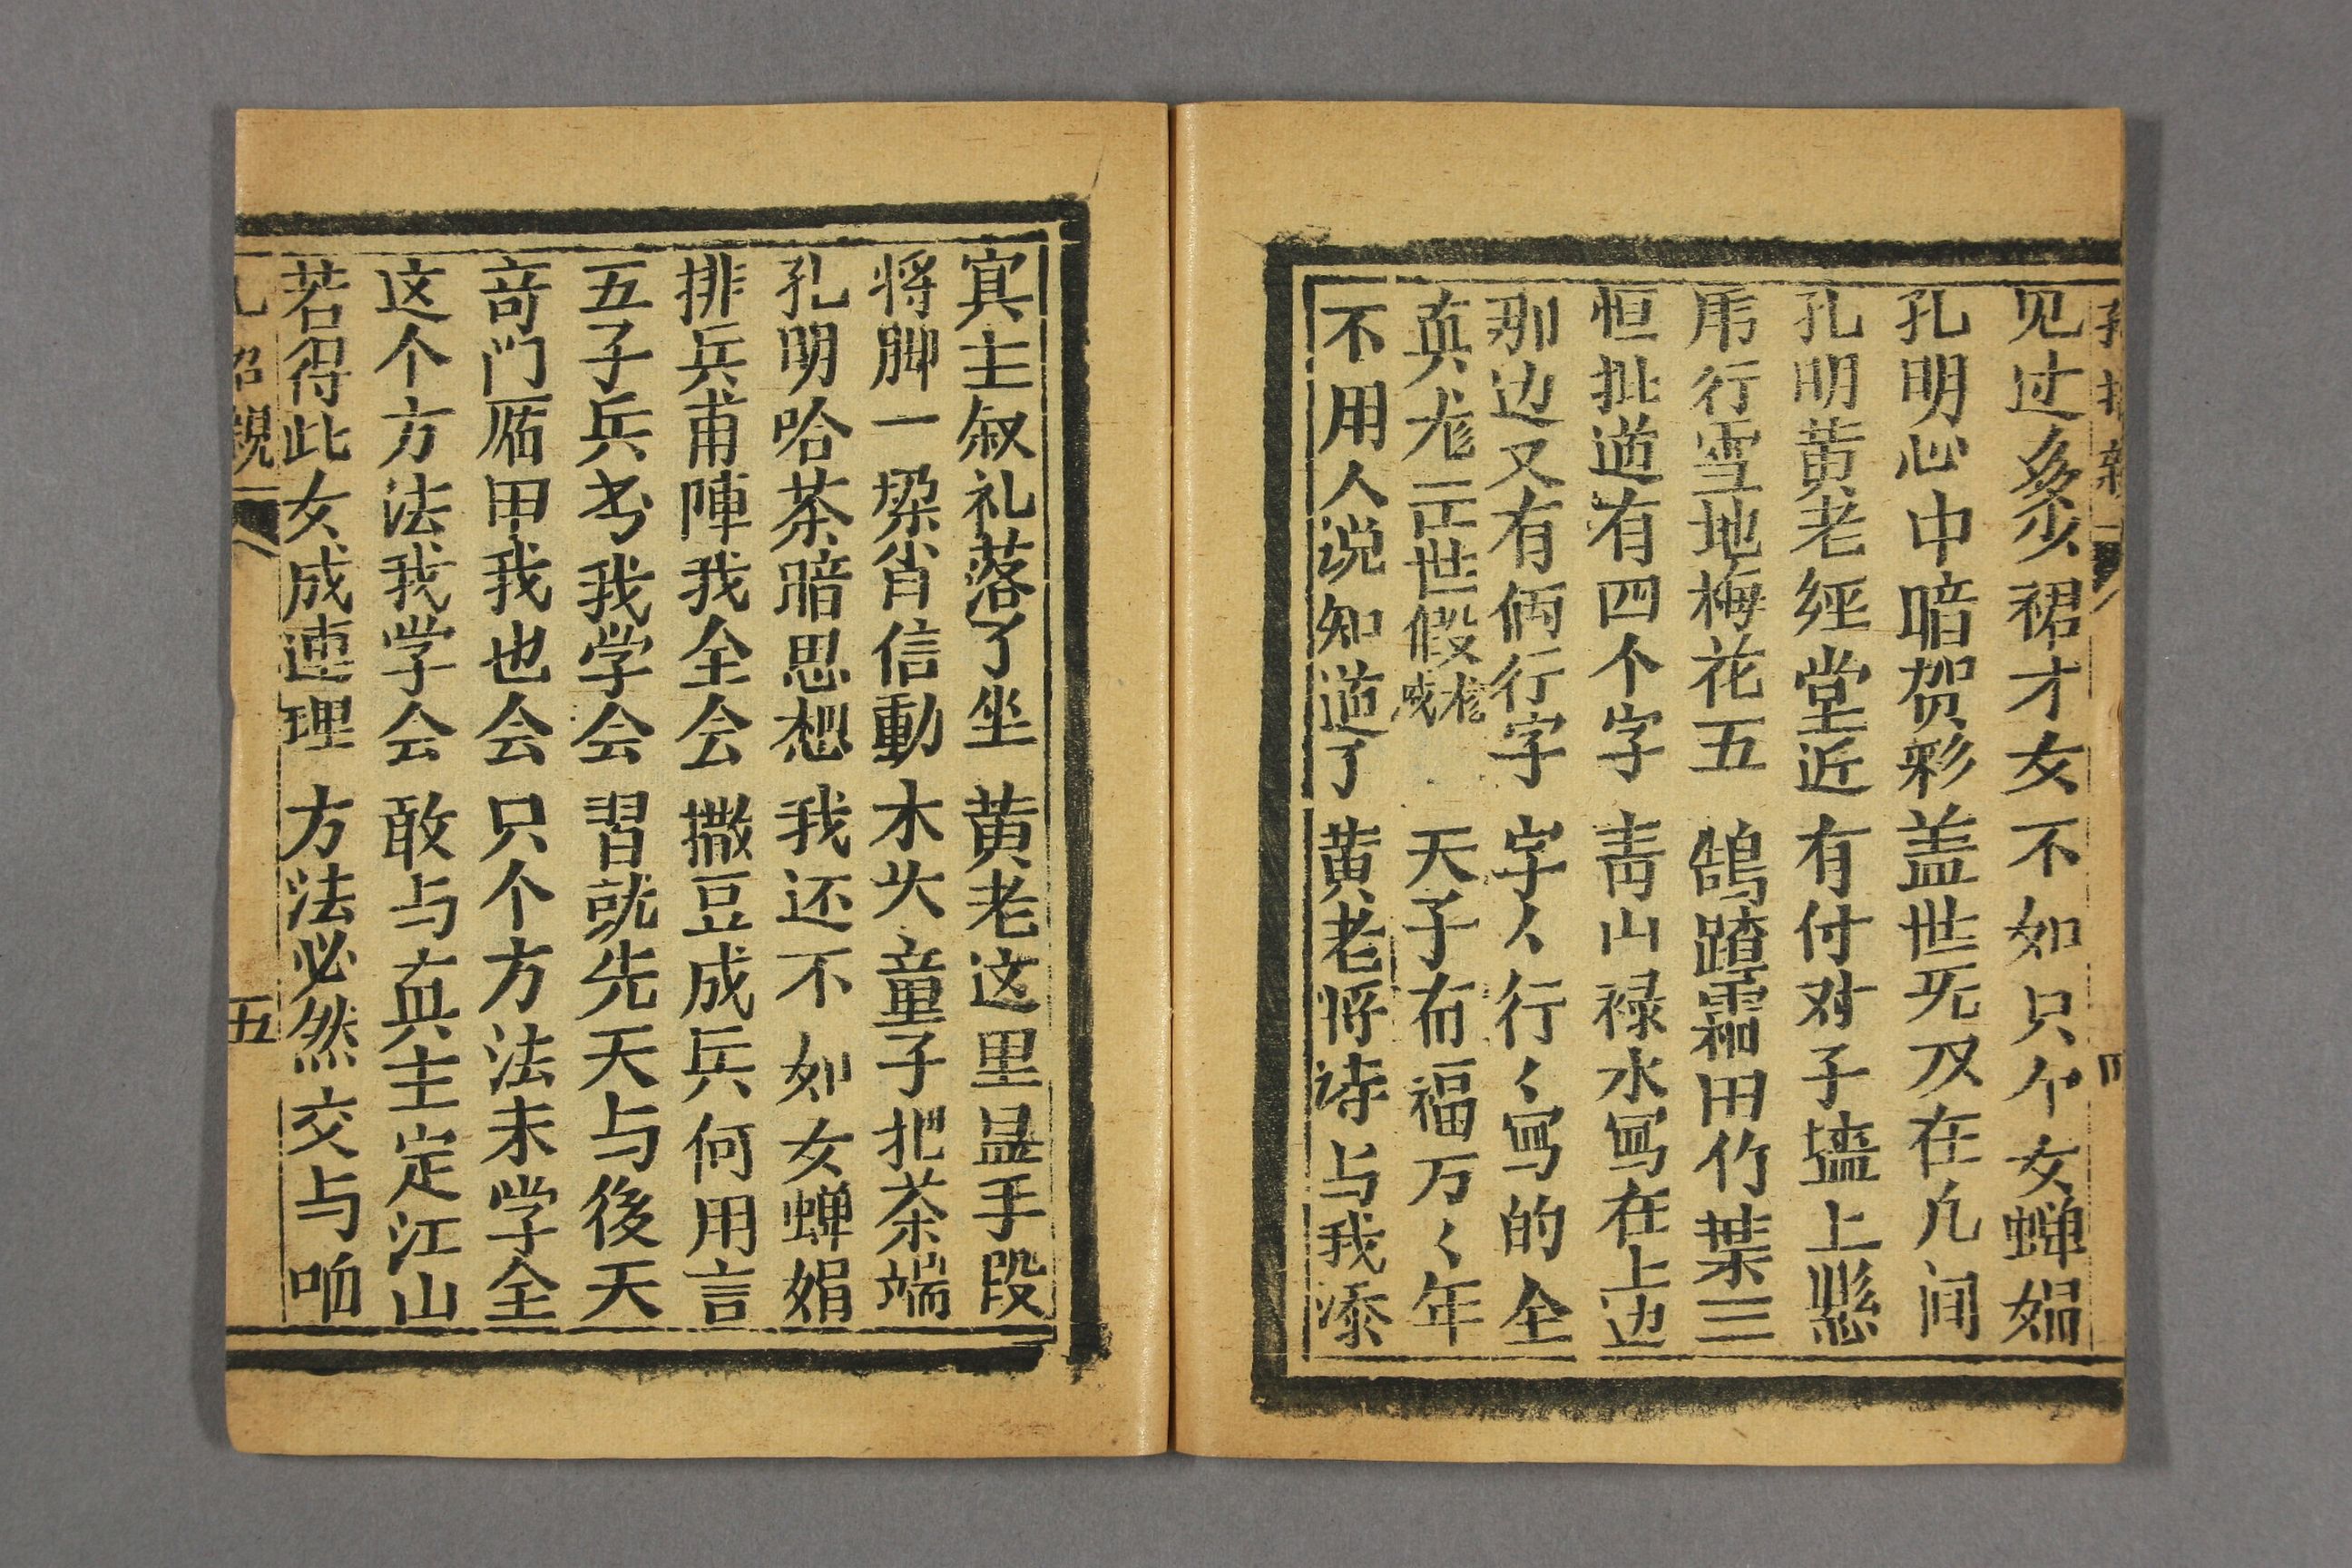 见过多少裙才女 不如只个女蝉娟
孔明心中暗贺彩 盖世无双在凡间
孔明黄老经堂近 有付对子墙上悬
行雪地梅花五 鹄踏霜田竹葉三
恒批道有四个字 青山禄水写在上边
那边又有俩行字 字〻行〻写的全
真龙三世假 天子有福万〻年
不用人说知道了 黄老将诗与我添
宾主叙礼落了坐 黄老这里显手段
将脚一梁肖信動 木头童子把茶端
孔明哈茶暗思想 我还不如女蝉娟
排兵甫陣我全会 撒豆成兵何用言
五子兵书我学会 習就先天与後天
奇门盾甲我也会 只个方法未学全
这个方法我学会 敢与真主定江山
若得此女成連理 方法必然交与咱
孔招親 五